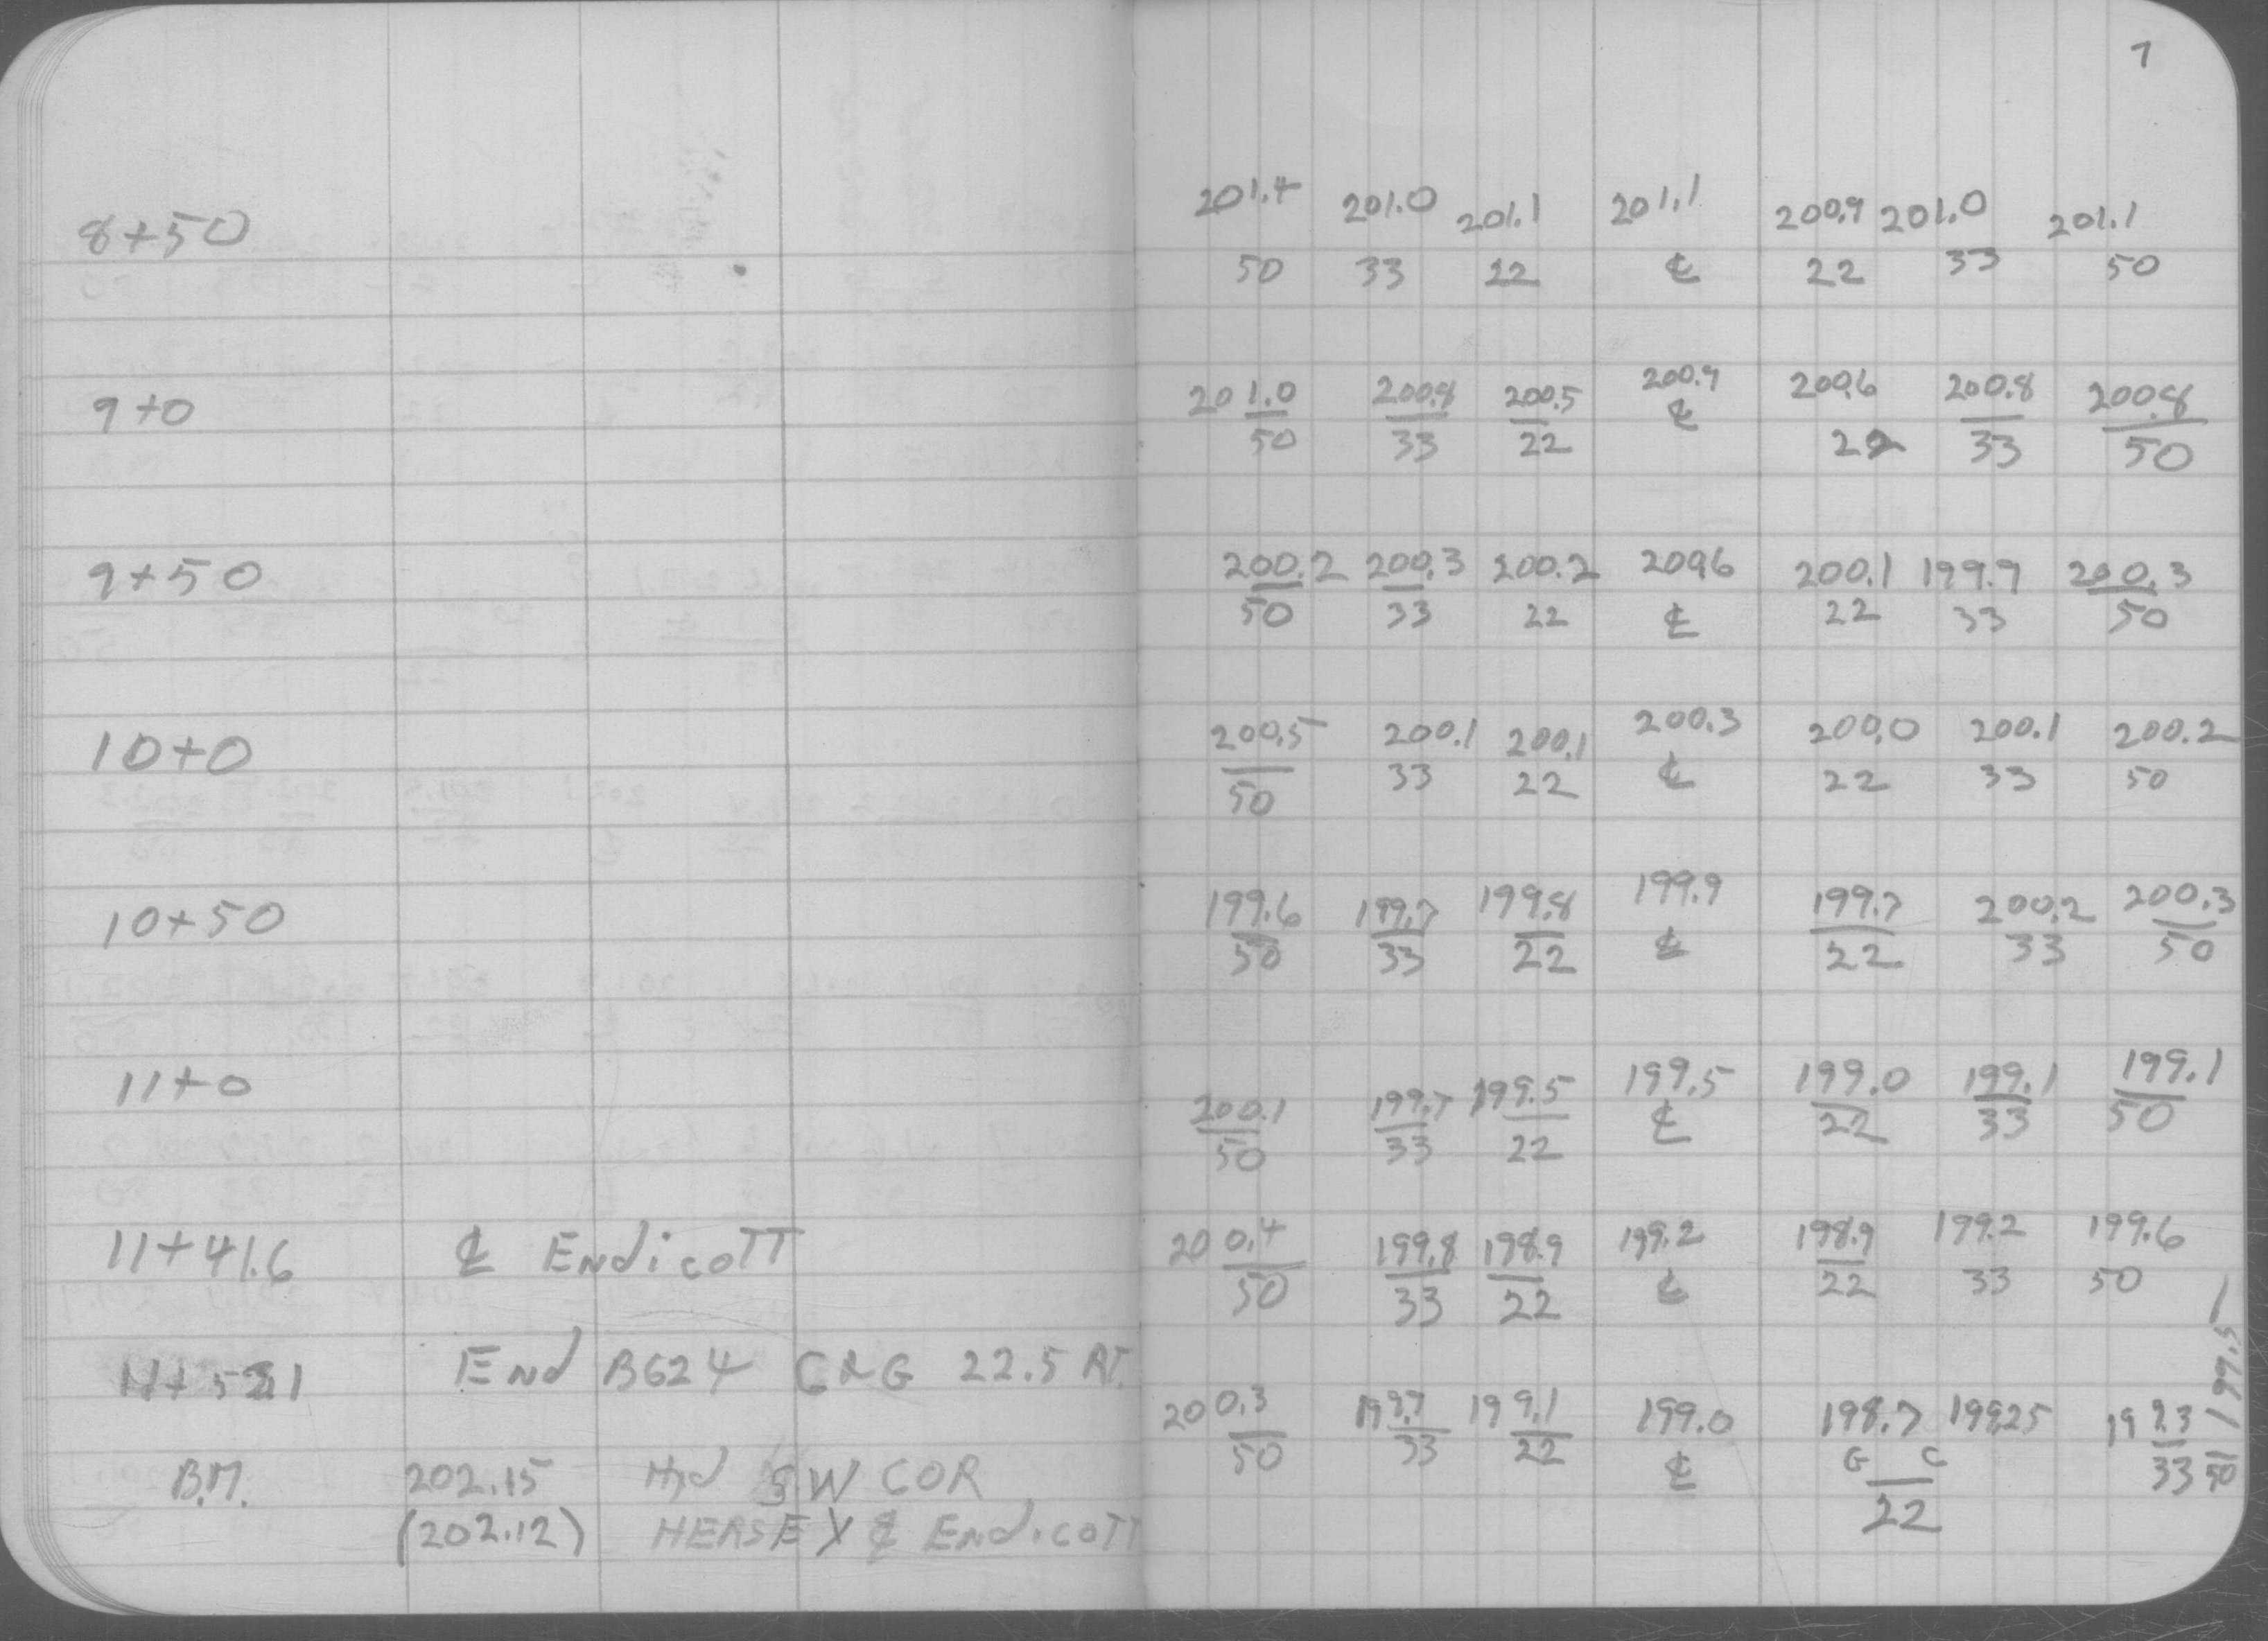 7
8+50 201.4 201.0 201.1 201.1 200.9 201.0 201.1
50 33 22 ℄ 22 33 50
9+0 201.0 200.8 200.5 200.9 200.6 200.8 200.8
50 33 22 ℄ 22 33 50
9+50 200.2 200.3 200.2 200.6 200.1 199.9 200.3
50 33 22 ℄ 22 33 50
10+0 200.5 200.1 200.1 200.3 200.0 200.1 200.2
50 33 22 ℄ 22 33 50
10+50 199.6 199.7 199.8 199.9 199.7 200.2 200.3
50 33 22 ℄ 22 33 50
11+0 200.1 199.7 199.5 199.5 199.0 199.1 199.1
50 33 22 ℄ 22 33 50
11+41.6 ℄ EndicoTT 200.4 199.8 198.9 199.2 198.9 199.2 199.6
50 33 22 ℄ 22 33 50
End B624 C&G 22.5 RT.
200.3 199.7 199.1 199.0 198.7 199.25 199.3 199.5
50 33 22 ℄ G C 33 50
22
B.M. 202.15 Hyd SW COR
(202.12) HERSEY & EndicoTT